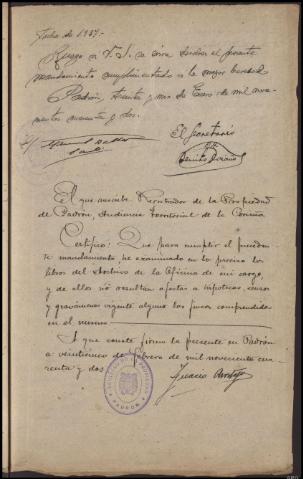 Julio de 1937.-
Ruego a V. S. se sirva devolver el presente
mandamiento cumplimentado a la mayor brevedad
Padrón, treinta y uno de Enero de mil nove-
cientos cuarenta y dos.
El Secretario
Benito
El que suscribe Registrador de la Propiedad
de Padrón, Audiencia territorial de la Coruña
Certifico: Que para cumplir el preceden
te mandamiento he examinado en lo preciso los
libros del Archivo de la Oficina de mi cargo,
y de ellos no resultan afectas a hipotecas, censos
y gravámenes vigente alguno las fincas comprendidas
en el mismo
Y que conste firmo la presente en Padrón
a veinticinco de febrero de mil novecientos cua-
renta y dos
PADRON